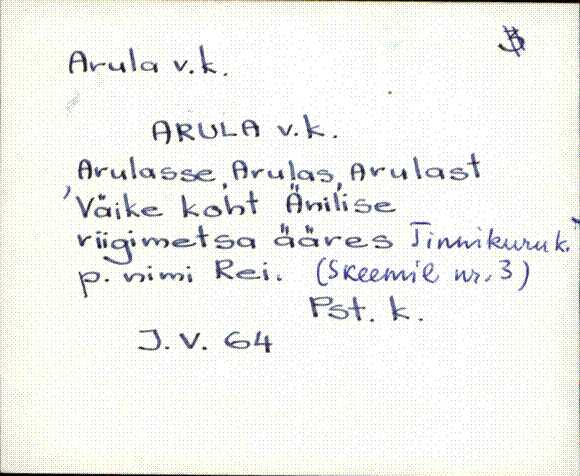 Arula v.k.
ARULA v.k.
Arulasse, Arulas, Arulast
'Väike koht Änilise
riigimetsa ääres Tinnikuru k.'
p. nimi Rei. (Skeemil nr. 3)
Pst. k.
J. V. 64